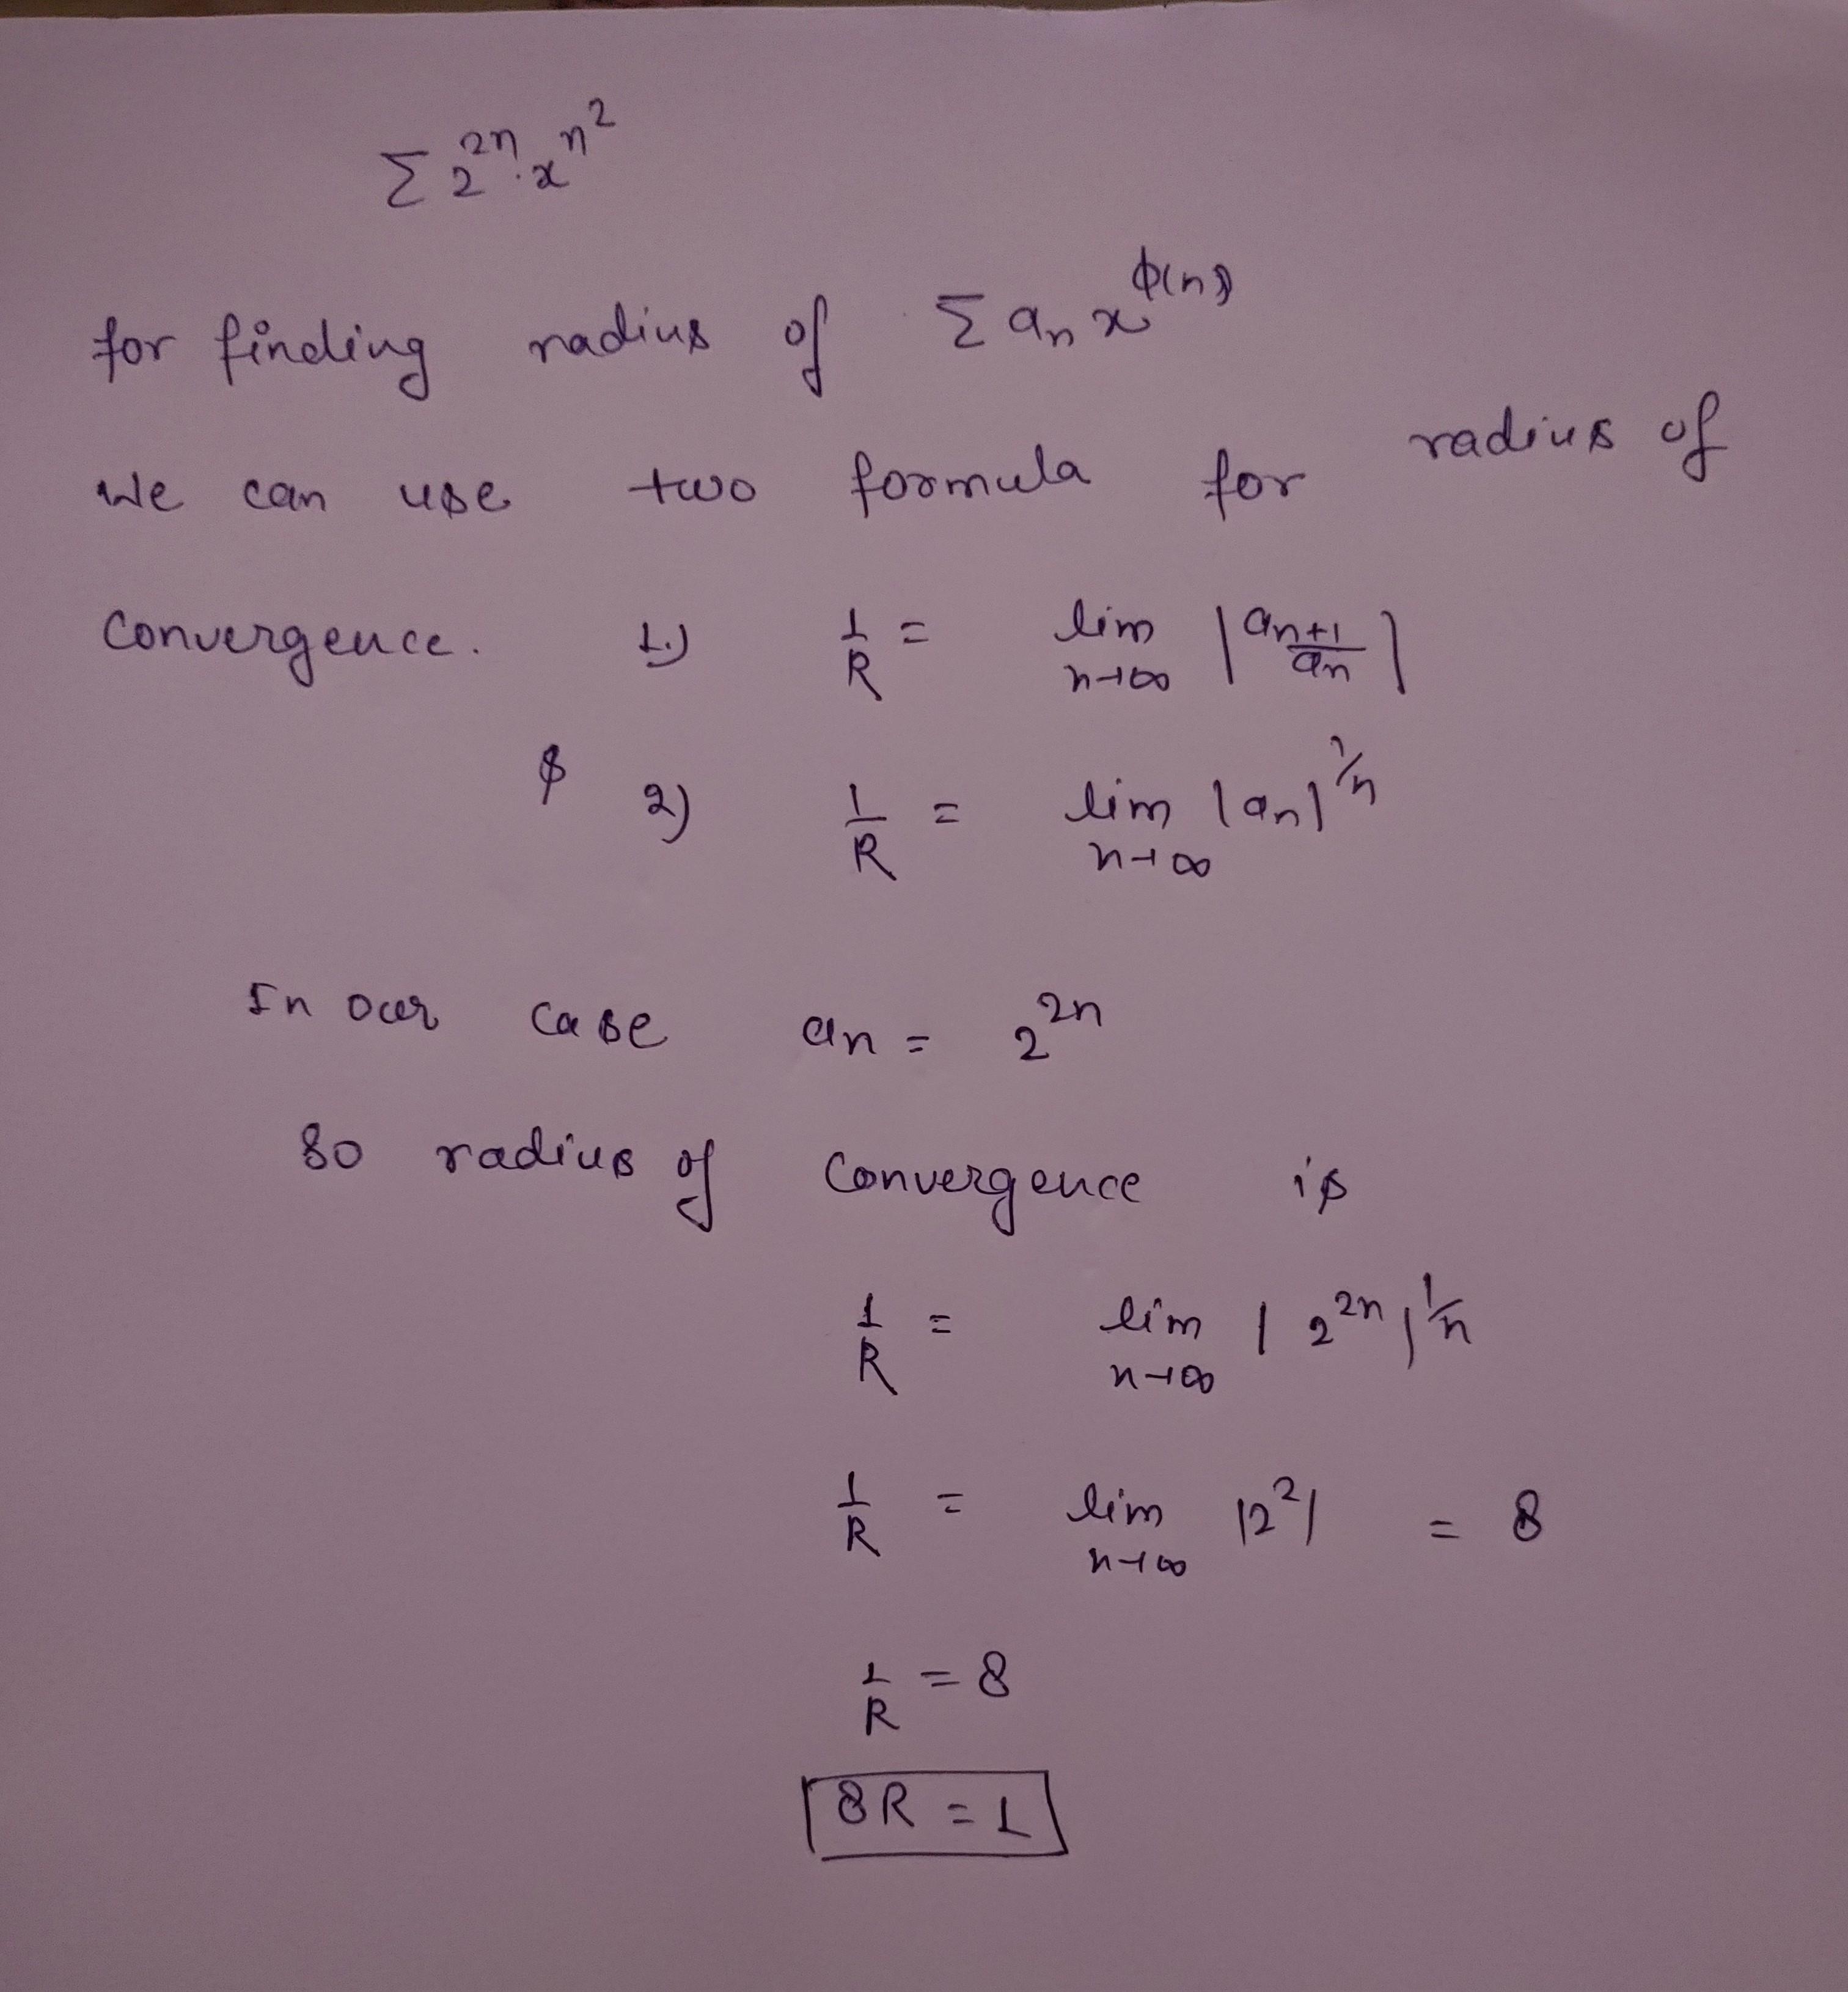 Σ 2^{2n}. x^{n^2}
for finding radius of Σ a_n x^{ϕ(n)}
we can use two formula for radius of
Convergence. 1.) 1/R = lim_{n→∞} |a_{n+1}/a_n|
& 2) 1/R = lim_{n→∞} |a_n|^{1/n}
In our case a_n = 2^{2n}
So radius of Convergence is
1/R = lim_{n→∞} |2^{2n}|^{1/n}
1/R = lim_{n→∞} |2^2| = 8
1/R = 8
8R = 1